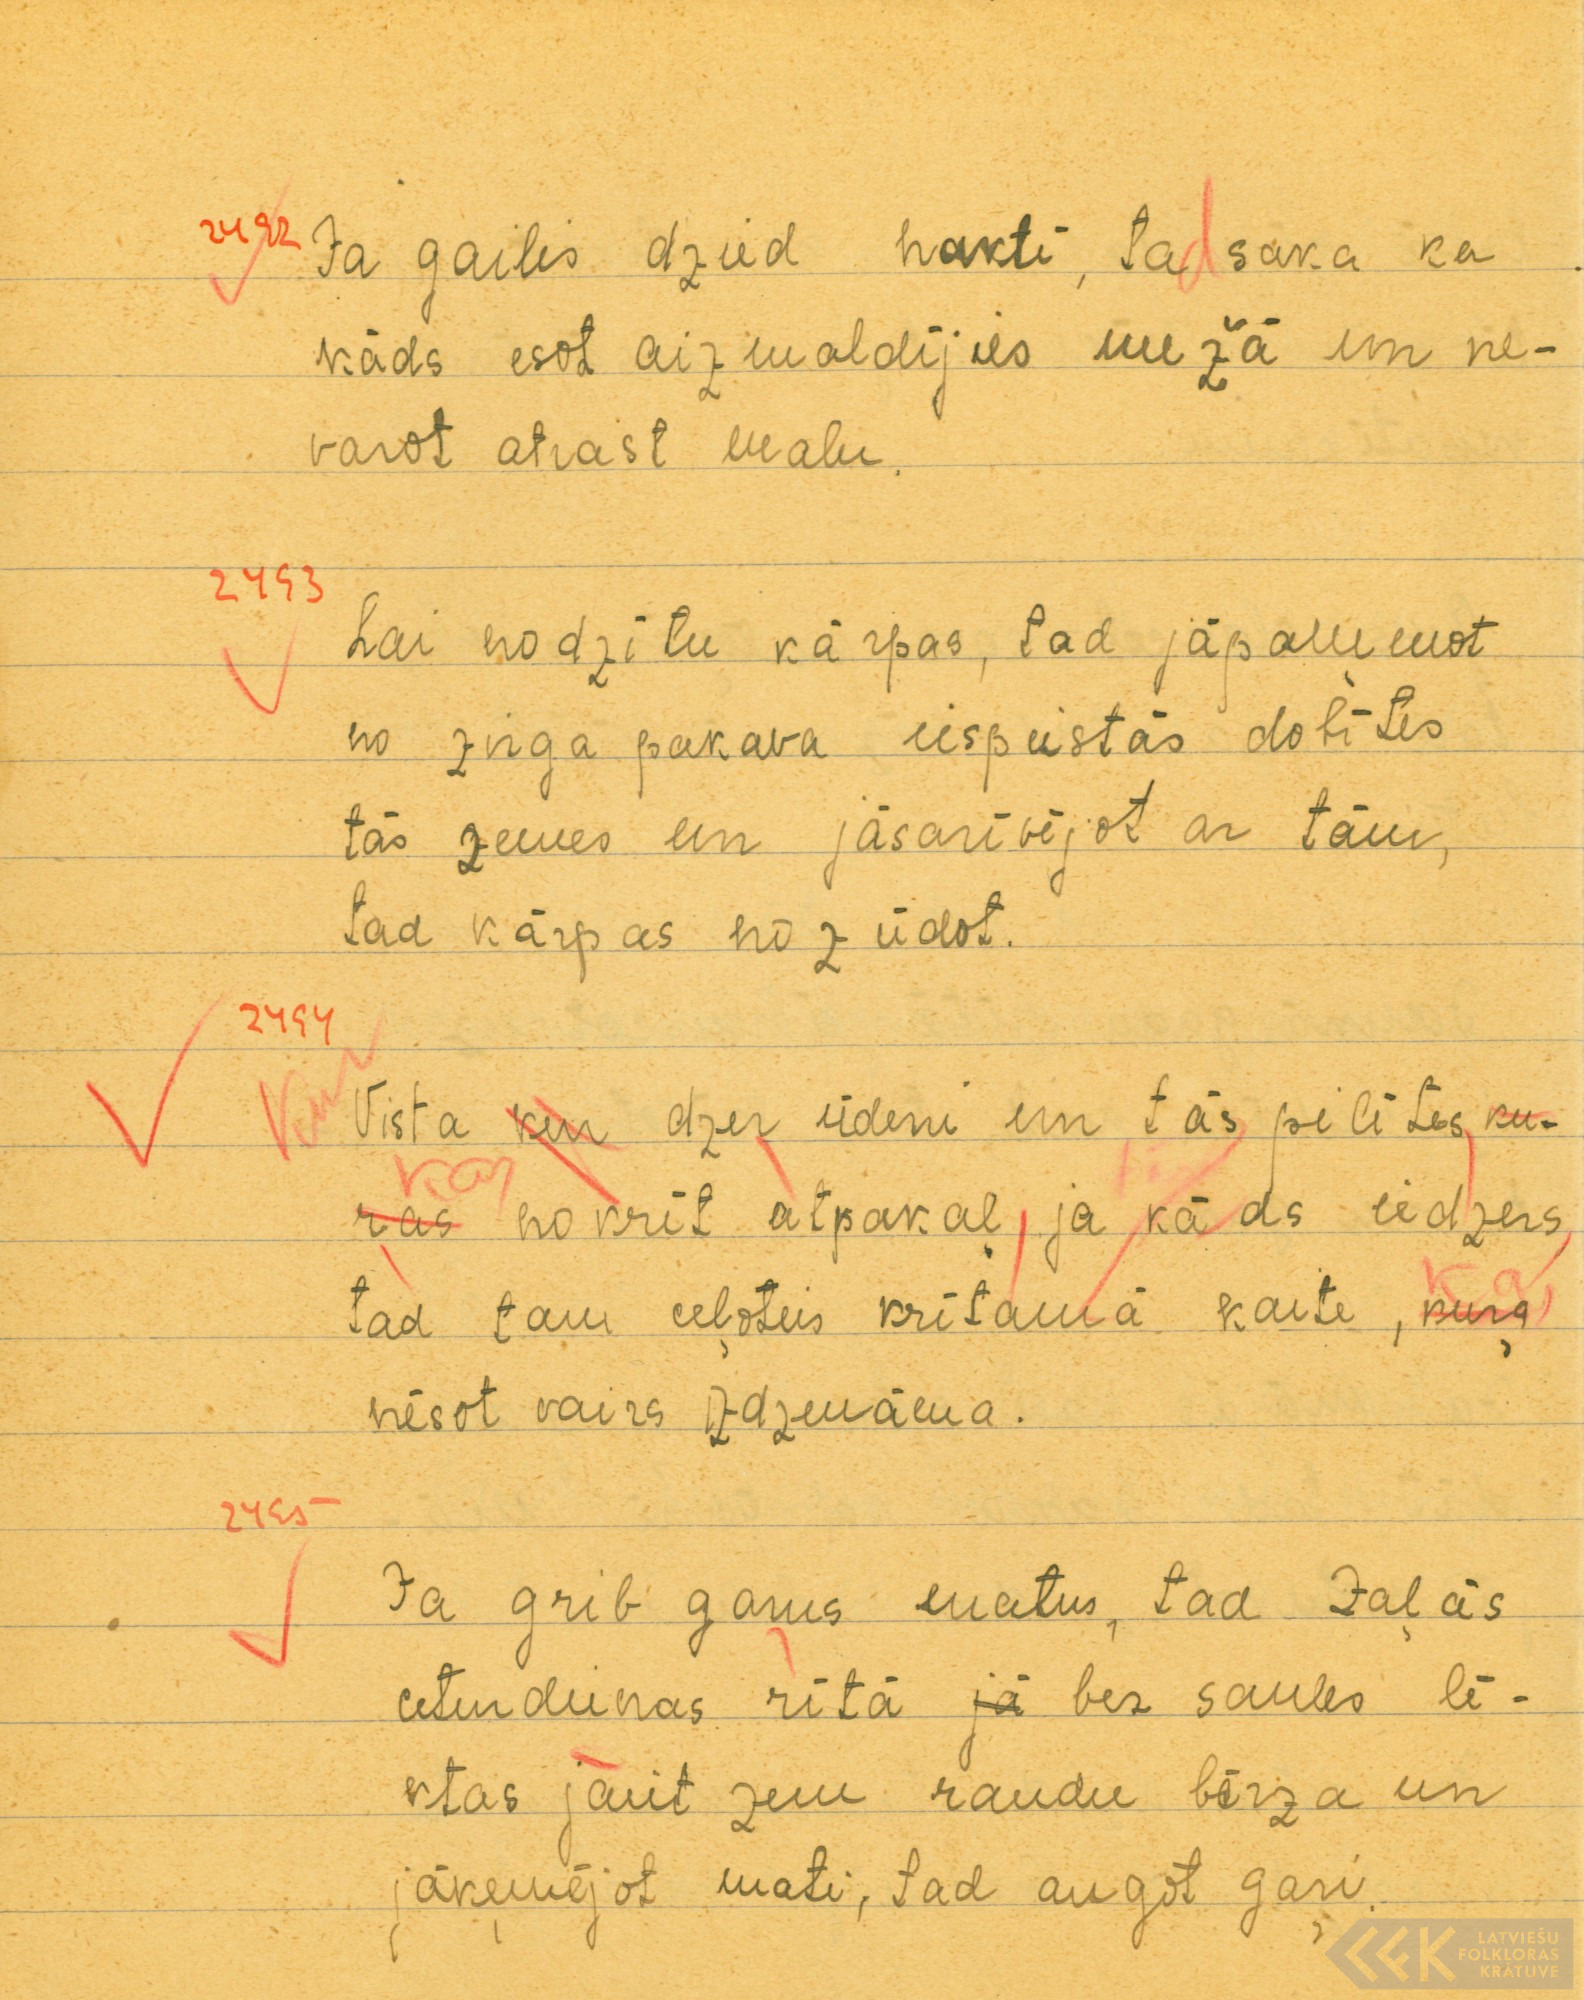 2492 Ja gailis dzied naktī, tad saka ka
kāds esot aizmaldījies mežā un ne-
varot atrast malu.
2493
Lai nodzītu kārpas, tad jāpaņemot
no zirga pakava iespiestās dobītes
tās zemes un jāsarīvējot ar tām,
tad kārpas nozūdot.
2494
Kur Vista kur dzer ūdeni un tās pilītes ku-
kas
ras nokrīt atpakaļ, ja kāds iedzers,
ka,
tad tam ceļoties krītamā kaite, kuŗa
nēsot vairs izdzenāma.
2495
Ja grib garus matus, tad Zaļās
ceturdienas rītā jā bez saules lē-
ktas jāiit zem raudu bērza un
jāķemējot mati, tad augot gaŗi.
LATVIEŠU
FOLKLORAS
KRĀTUVE